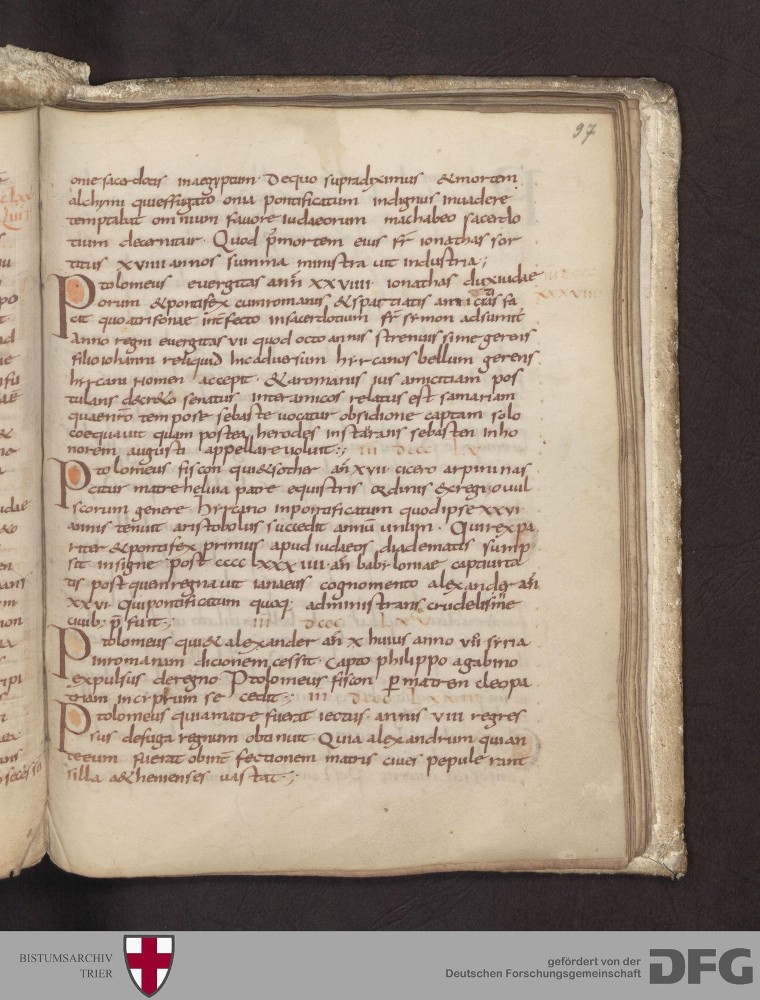 97
onie sacerdotis inaegyptum· Dequo supradiximus &mortem
alchymi quieffugato onia pontificatum indignus inuadere
temptabat omnium fauore iudaeorum machabeo sacerdo
tium decernitur· Quod p̄mortem eius fr̄ ionathas sor
titus xviiii annos summa ministrauit industria;
Ptolomeus euergitas ann̄ xxviiii ionathas duxiudae
orum &pontifex cumromanis &spartiatis amicicias fa
cit quoatrifonae int̄fecto insacerdotium fr̄ symon adsumit̄
Anno regni euergitis vii quod octo annis strenuissimegerens
filioiohanni reliquid hicaduersum hyrcanos bellum gerens
hyrcani nomen accepit· &aromanis ius amicitiam pos
tulans decr&o senatus interamicos relatus est samariam
quaenr̄o tempose sebaste uocatur obsidione captam solo
coequauit quam postea herodes instaurans sebasten inho
norem augusti appellareuoluit;
Ptolomeus fiscon qui&sother an̄ xvii cicero arpini nas
citur matre heluia patre equistris ordinis exregiouul
scorum genere hyrcano inpontificatum quodipse xxvi
annis tenuit aristobolus succedit annū unum· Quirexpa
riter &pontifex primus apud iudaeos diadematis sump
sit insigne post cccc lxxx iiii an̄ babyloniae captiuita
tis postquemregnauit ianaeus cognomento alexander an̄
xxvi Quipontificatum quoq; administrans crudelissime
ciuib; p̄fuit;
Ptolomeus qui& alexander an̄ x huius anno vii syria
inromanam dicionem cessit· Capto philippo agabino
expulsus deregno Ptolomeus fiscon p̄ matren cleopa
tram incyprum secedit;
Ptolomeus quiamatre fuerat iectus annis viii regres
sus defuga regnum obtinuit· Quia alexandrum quian
teeum fuerat obint̄fectionem matris ciues pepulerant
silla athenienses uastat;
BISTUMSARCHIV
TRIER
gefördert von der
Deutschen Forschungsgemeinschaft
DFG